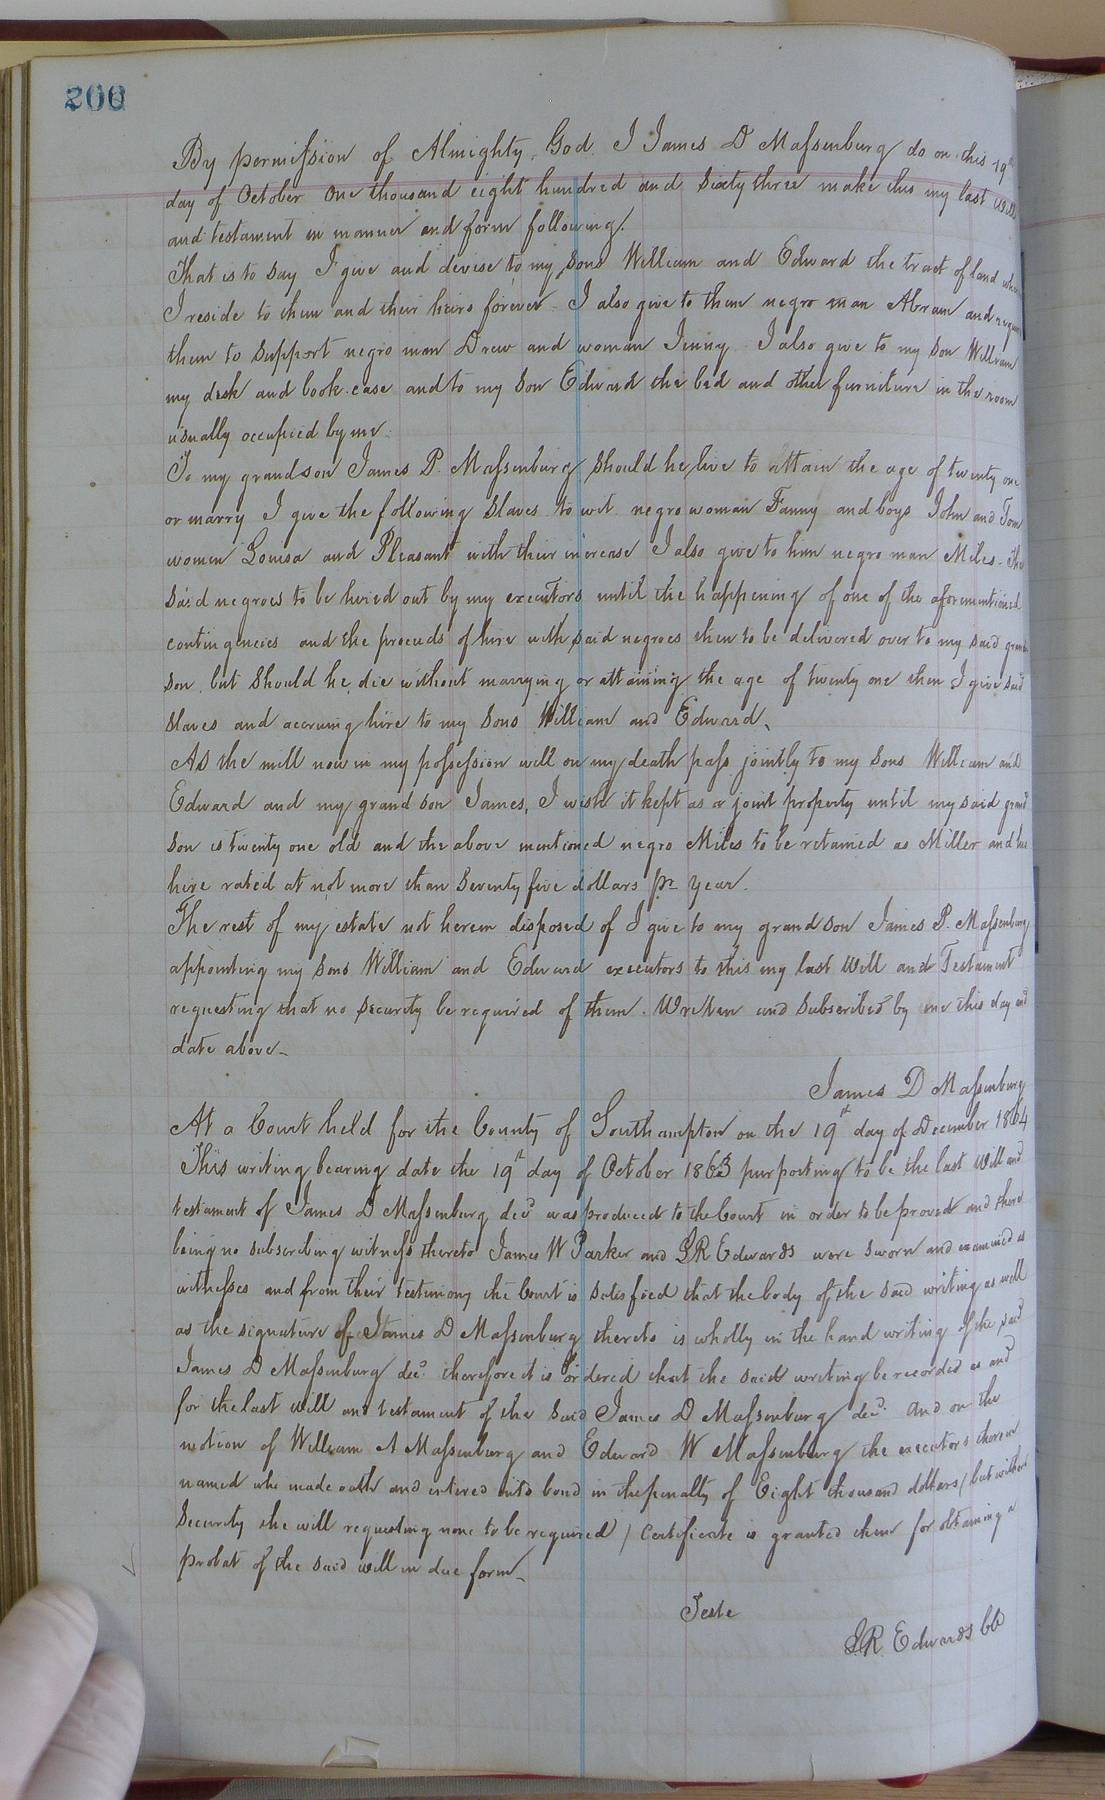 200
By permission of Almighty God. I James D Massenburg do on this 19th
day of October One thousand eight hundred and Sixty three make this my last will
and testament in manner and form following.
That is to say I give and devise to my sons William and Edward the tract of land where
I reside to them and their heirs forever. I also give to them negro man Abram and require
them to support negro man Drew and woman Jinny. I also give to my son William
my desk and book case and to my son Edward the bed and other furniture in the room
usually occupied by me.
To my grandson James P. Massenburg, should he live to attain the age of twenty one
or marry I give the following slaves to wit negro woman Fanny and boys John and Tom
women Louisa and Pleasant with their increase I also give to him negro man Miles. The
said negroes to be hired out by my executors until the happening of one of the aforementioned
contingencies and the proceeds of hire with said negroes then to be delivered over to my said grand
son, but should he die without marrying or attaining the age of twenty one then I give said
slaves and accruing hire to my sons William and Edward.
As the mill now in my possession will on my death pass jointly to my sons William and
Edward and my grand son James, I wish it kept as a joint property until my said grand
son is twenty one old and the above mentioned negro Miles to be retained as Miller and his
hire rated at not more than Seventy five dollars pr year.
The rest of my estate not herein disposed of I give to my grandson James P. Massenburg
appointing my sons William and Edward executors to this my last Will and Testament
requesting that no security be required of them. Written and subscribed by me this day and
date above.
James D Massenburg
At a Court held for the County of Southampton on the 19th day of December 1864
This writing bearing date the 19th day of October 1863 purporting to be the last Will and
testament of James D Massenburg decd was produced to the Court in order to be proved and there
being no subscribing witness thereto James W Parker and LR Edwards were sworn and examined as
witnesses and from their testimony the Court is satisfied that the body of the said writing as well
as the signature of James D Massenburg thereto is wholly in the hand writing of the said
James D Massenburg decd therefore it is ordered that the said writing be recorded as and
for the last will and testament of the said James D Massenburg decd. And on the
motion of William A Massenburg and Edward W Massenburg the executors therein
named who made oath and entered into bond in the penalty of Eight thousand dollars (but without
Security the will requesting none to be required) Certificate is granted them for obtaining a
probat of the said will in due form.
Teste
LR Edwards CC